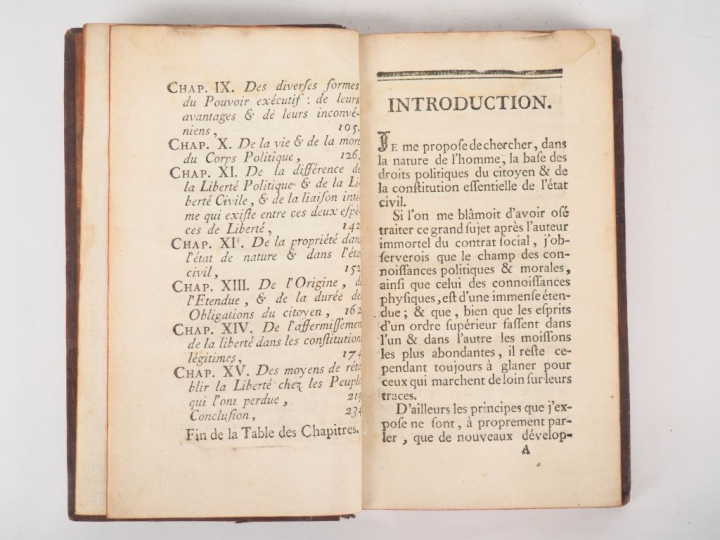 CHAP. IX. Des diverſes formes
du Pouvoir exécutif : de leurs
avantages & de leurs inconvé-
niens, 105.
CHAP. X. De la vie & de la mort
du Corps Politique, 126.
CHAP. XI. De la différence de
la Liberté Politique & de la Li-
berté Civile, & de la liaiſon inti-
me qui exiſte entre ces deux eſpè-
ces de Liberté, 142
CHAP. XII. De la propriété dans
l'état de nature & dans l'état
civil, 152
CHAP. XIII. De l'Origine, de
l'Etendue, & de la durée des
Obligations du citoyen, 162
CHAP. XIV. De l'affermiſſement
de la liberté dans les conſtitutions
légitimes, 174
CHAP. XV. Des moyens de réta-
blir la Liberté chez les Peuples
qui l'ont perdue, 219
Concluſion, 234
Fin de la Table des Chapitres.
INTRODUCTION.
JE me propoſe de chercher, dans
la nature de l'homme, la baſe des
droits politiques du citoyen & de
la conſtitution eſſentielle de l'état
civil.
Si l'on me blâmoit d'avoir oſé
traiter ce grand ſujet après l'auteur
immortel du contrat ſocial, j'ob-
ſerverois que le champ des con-
noiſſances politiques & morales,
ainſi que celui des connoiſſances
phyſiques, eſt d'une immenſe éten-
due ; & que, bien que les eſprits
d'un ordre ſupérieur faſſent dans
l'un & dans l'autre les moiſſons
les plus abondantes, il reſte ce-
pendant toujours à glaner pour
ceux qui marchent de loin ſur leurs
traces.
D'ailleurs les principes que j'ex-
poſe ne ſont, à proprement par-
ler, que de nouveaux dévelop-
A